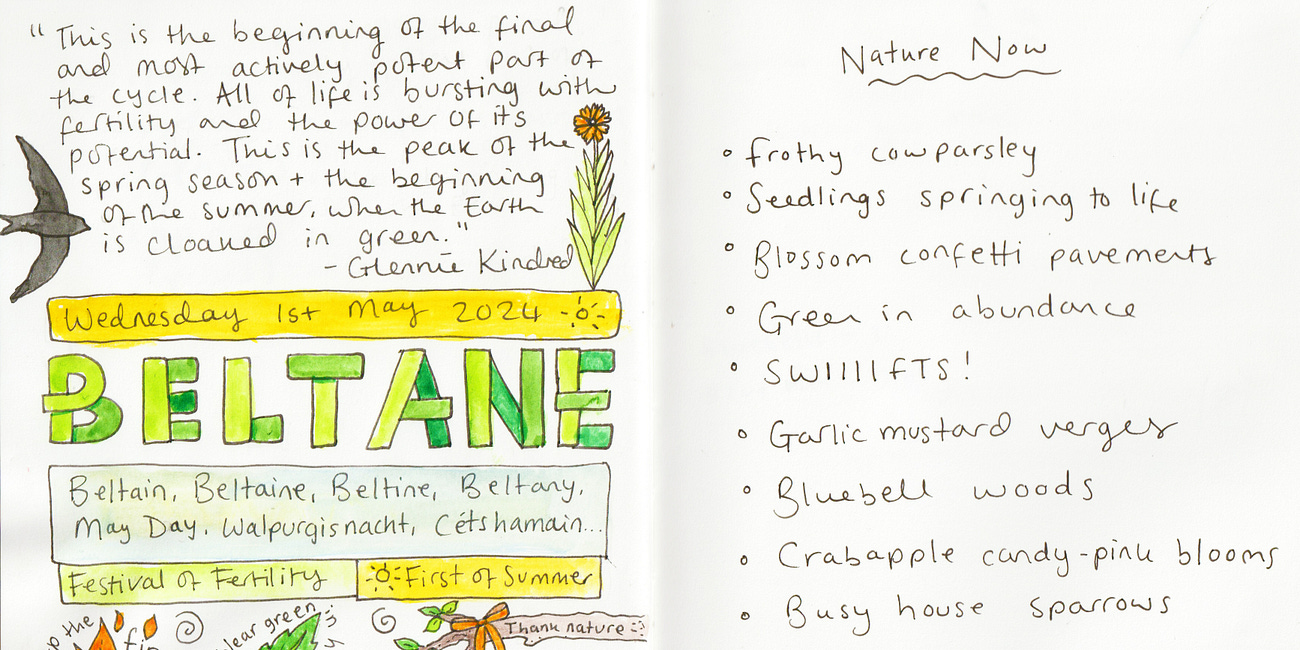 "This is the beginning of the final
and most actively potent part of
the cycle. All of life is bursting with
fertility and the power of its
potential. This is the peak of the
spring season + the beginning
of the summer, when the Earth
is cloaked in green."
- Glennie Kindred
Wednesday 1st May 2024
BELTANE
Beltain, Beltaine, Beltine, Beltany,
May Day, Walpurgisnacht, Cétshamain...
Festival of Fertility
First of Summer
the
wear green
Thank nature
Nature Now
frothy cowparsley
Seedlings springing to life
Blossom confetti pavements
Green in abundance
SWIIIIFTS!
Garlic mustard verges
Bluebell woods
Crabapple candy-pink blooms
Busy house sparrows